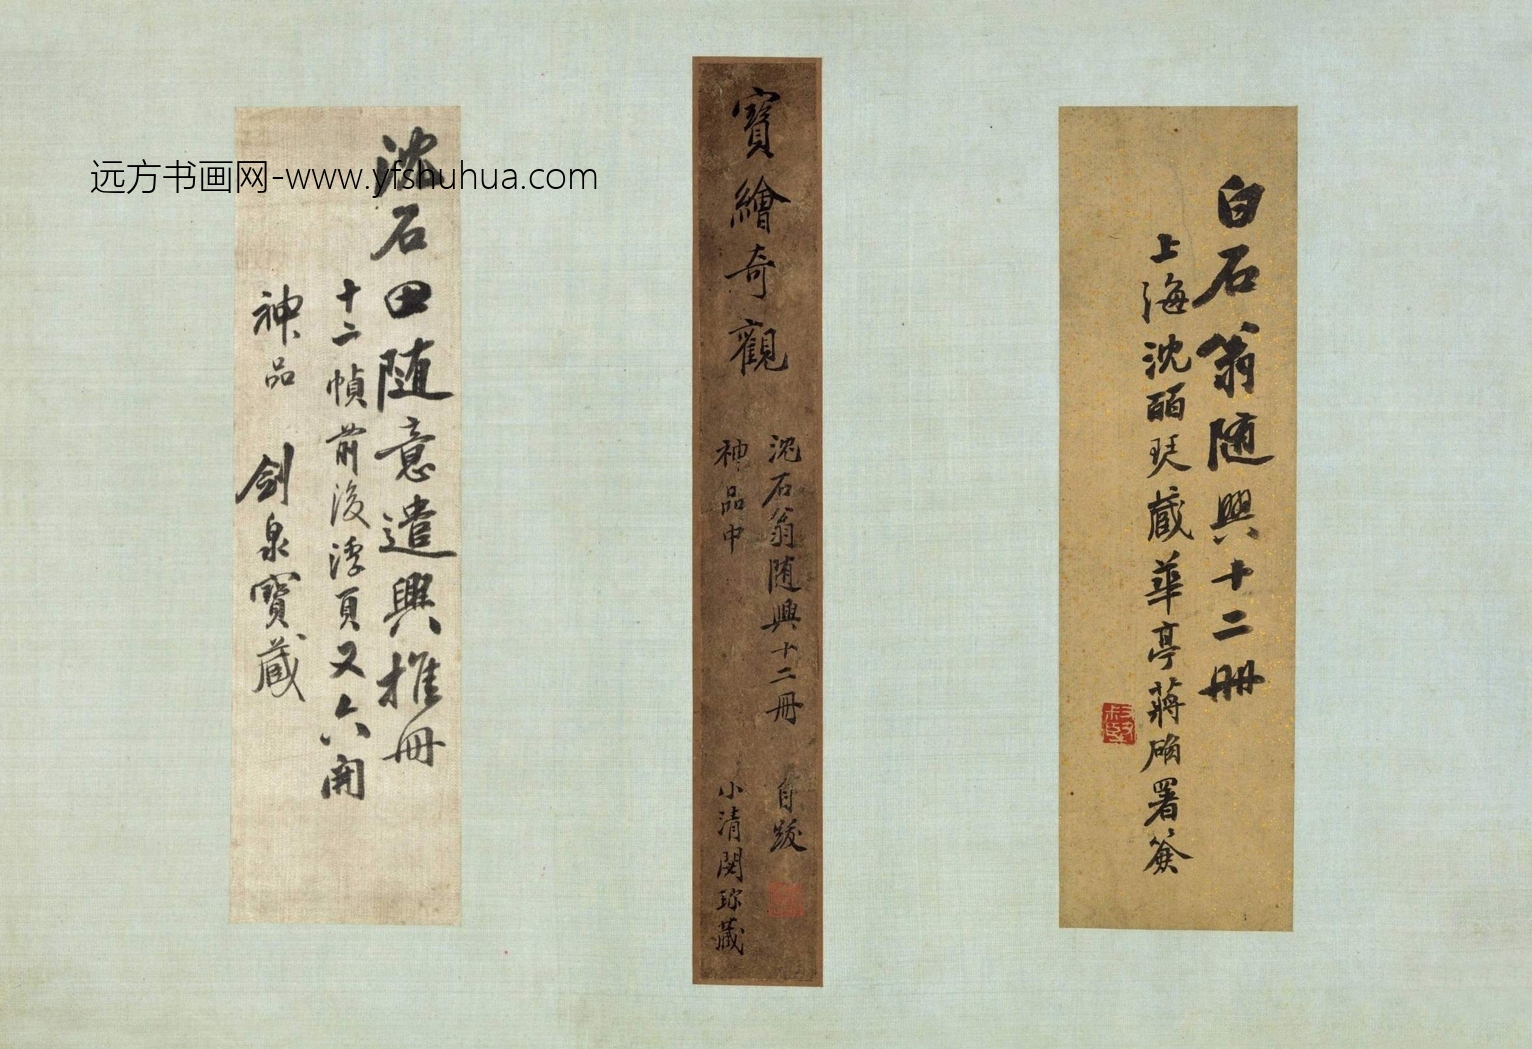 白石翁随興十二冊
上海沈酉琴藏華亭蔣确署簽
寶繪奇觀
沈石翁随興十二冊 自跋
神品中 小清閟珎藏
沈石田随意遣興推冊
十二幀前後浮頁又六開
神品 劍泉寶藏
远方书画网-www.yfshuhua.com